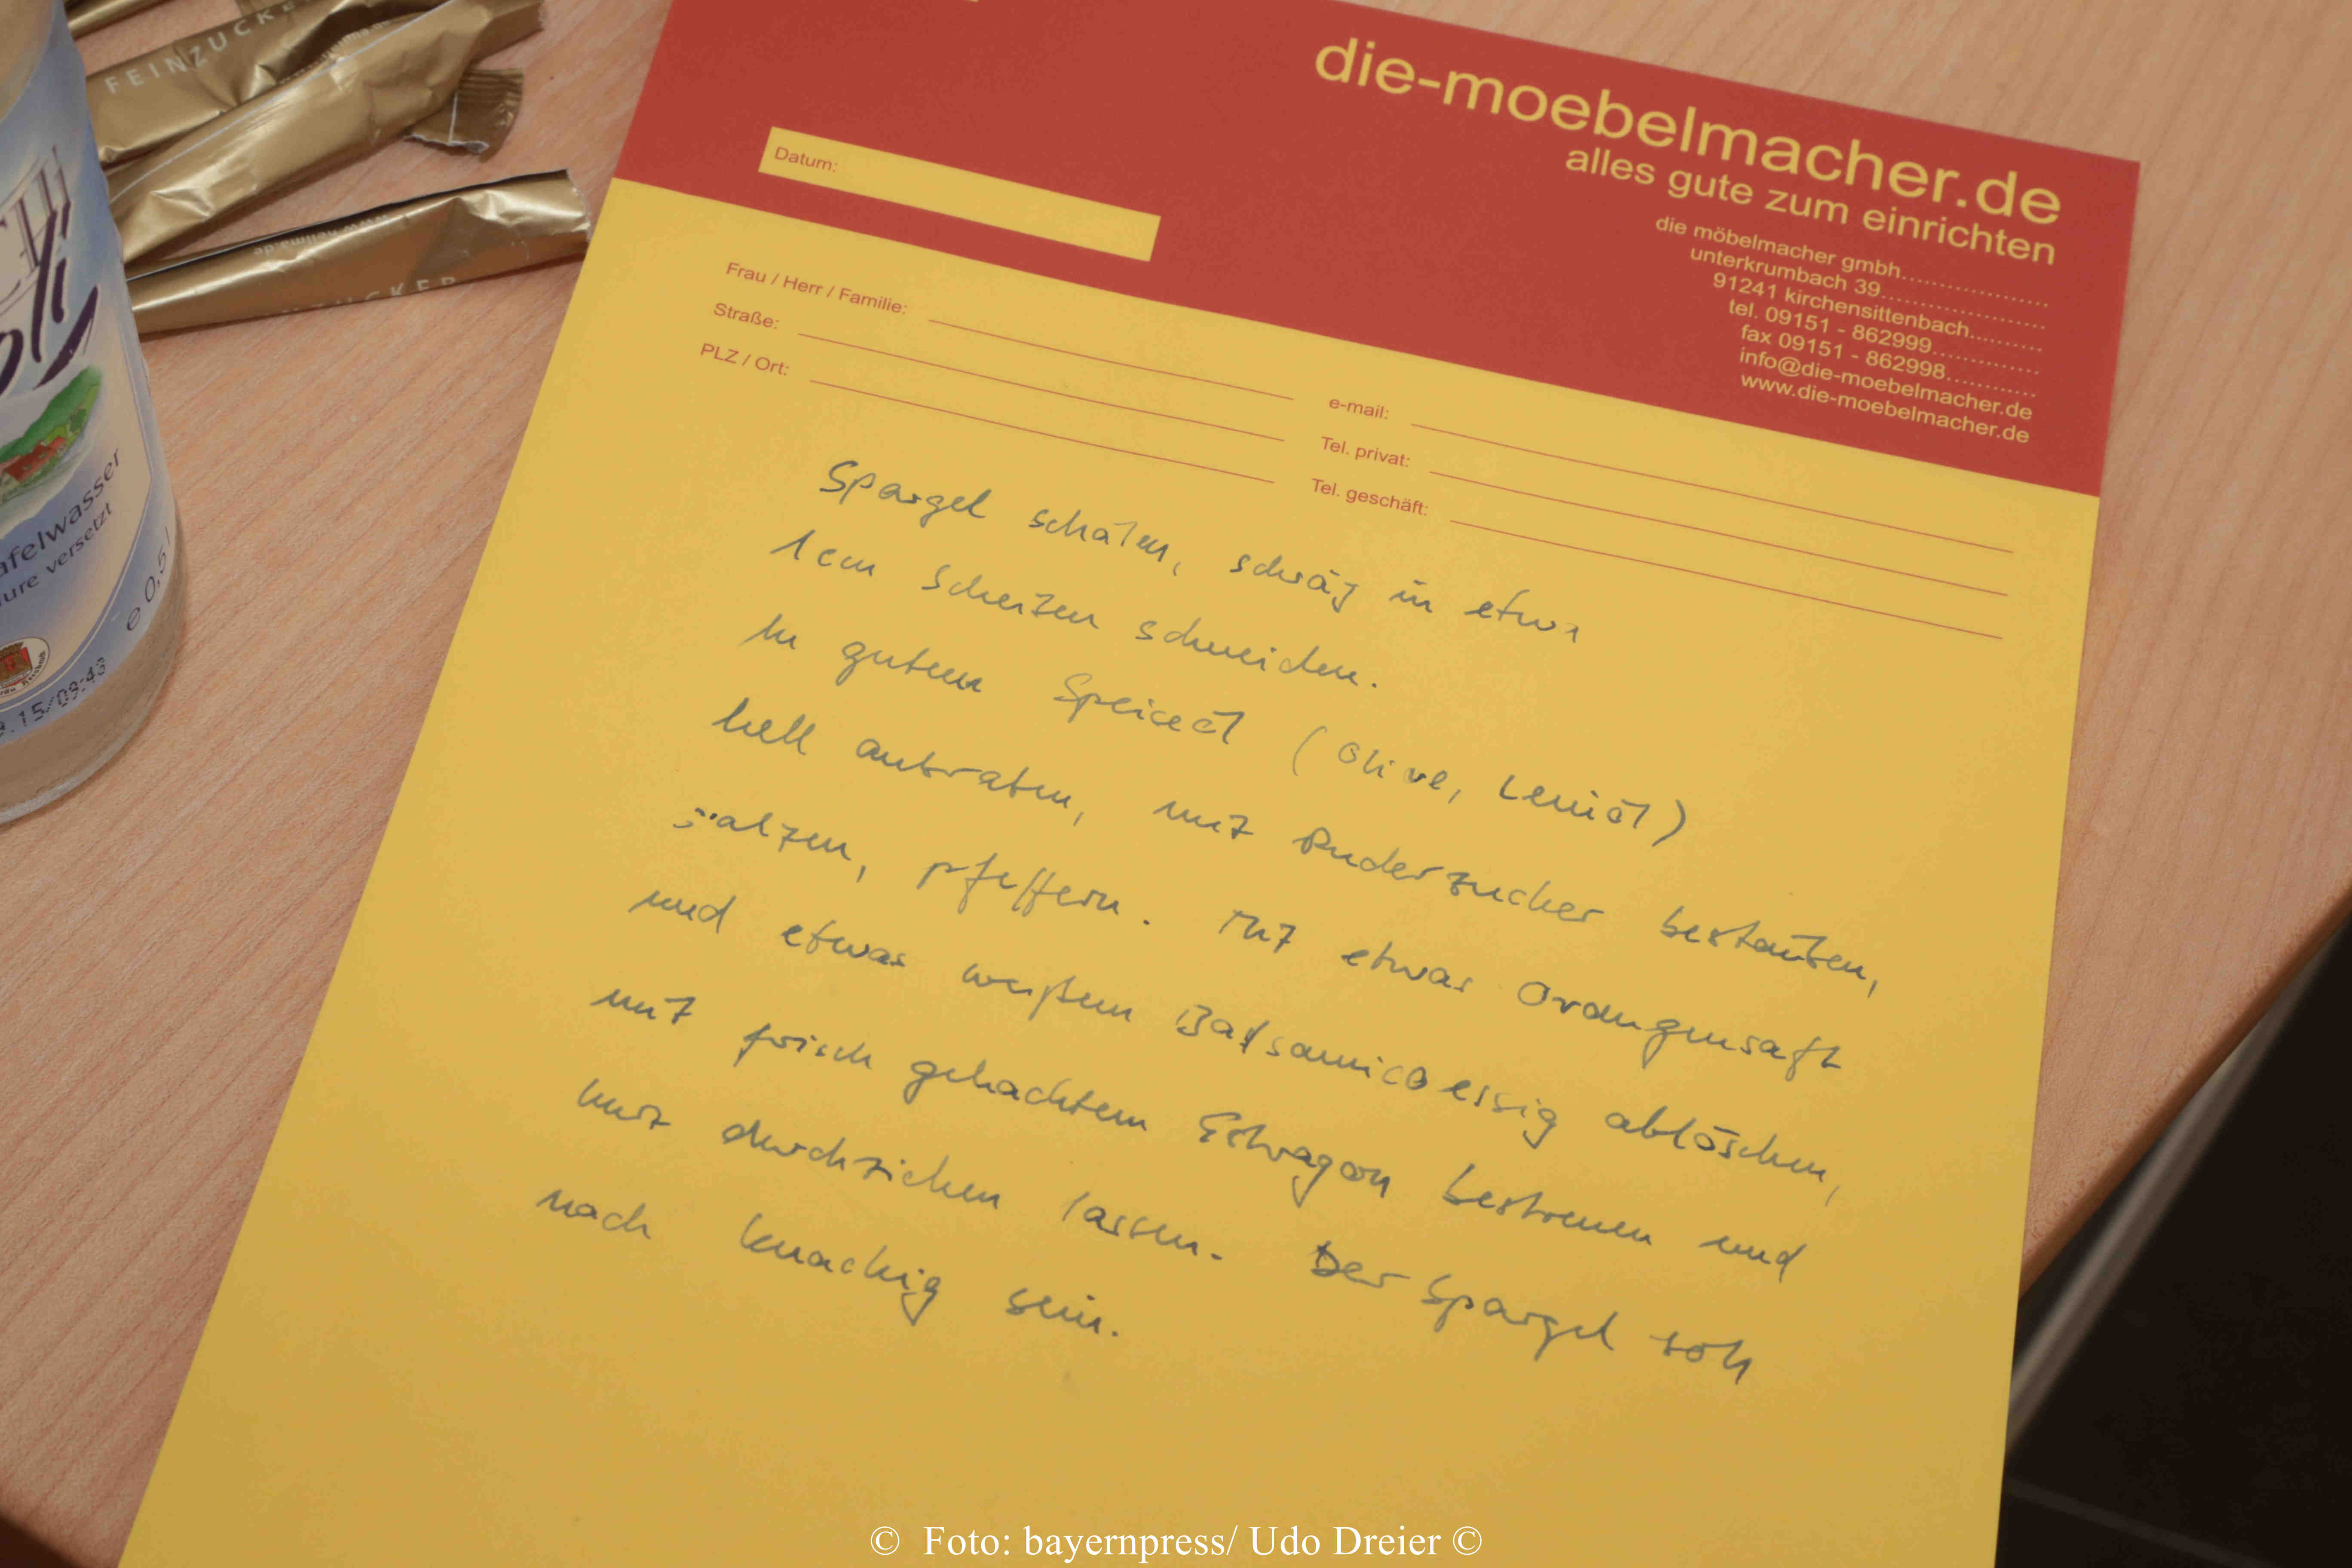 FEINZUCKE
www.hellma.de
ZUCKER
afelwasser
ure versetzt
e 0,5 l
15/09:43
die-moebelmacher.de
alles gute zum einrichten
die möbelmacher gmbh....................
unterkrumbach 39......................
91241 kirchensittenbach..........
tel. 09151 - 862999..............
fax 09151 - 862998............
info@die-moebelmacher.de
www.die-moebelmacher.de
Datum:
Frau / Herr / Familie:
Straße:
PLZ / Ort:
e-mail:
Tel. privat:
Tel. geschäft:
Spargel schälen, schräg in etwa
1cm Scheiben schneiden.
In gutem Speiseöl (Olive, Leinöl)
hell anbraten, mit Puderzucker bestäuben,
salzen, pfeffern. Mit etwas Orangensaft
und etwas weißem Balsamicoessig ablöschen,
mit frisch gehacktem Estragon bestreuen und
kurz durchziehen lassen. Der Spargel soll
noch knackig sein.
© Foto: bayernpress/ Udo Dreier ©